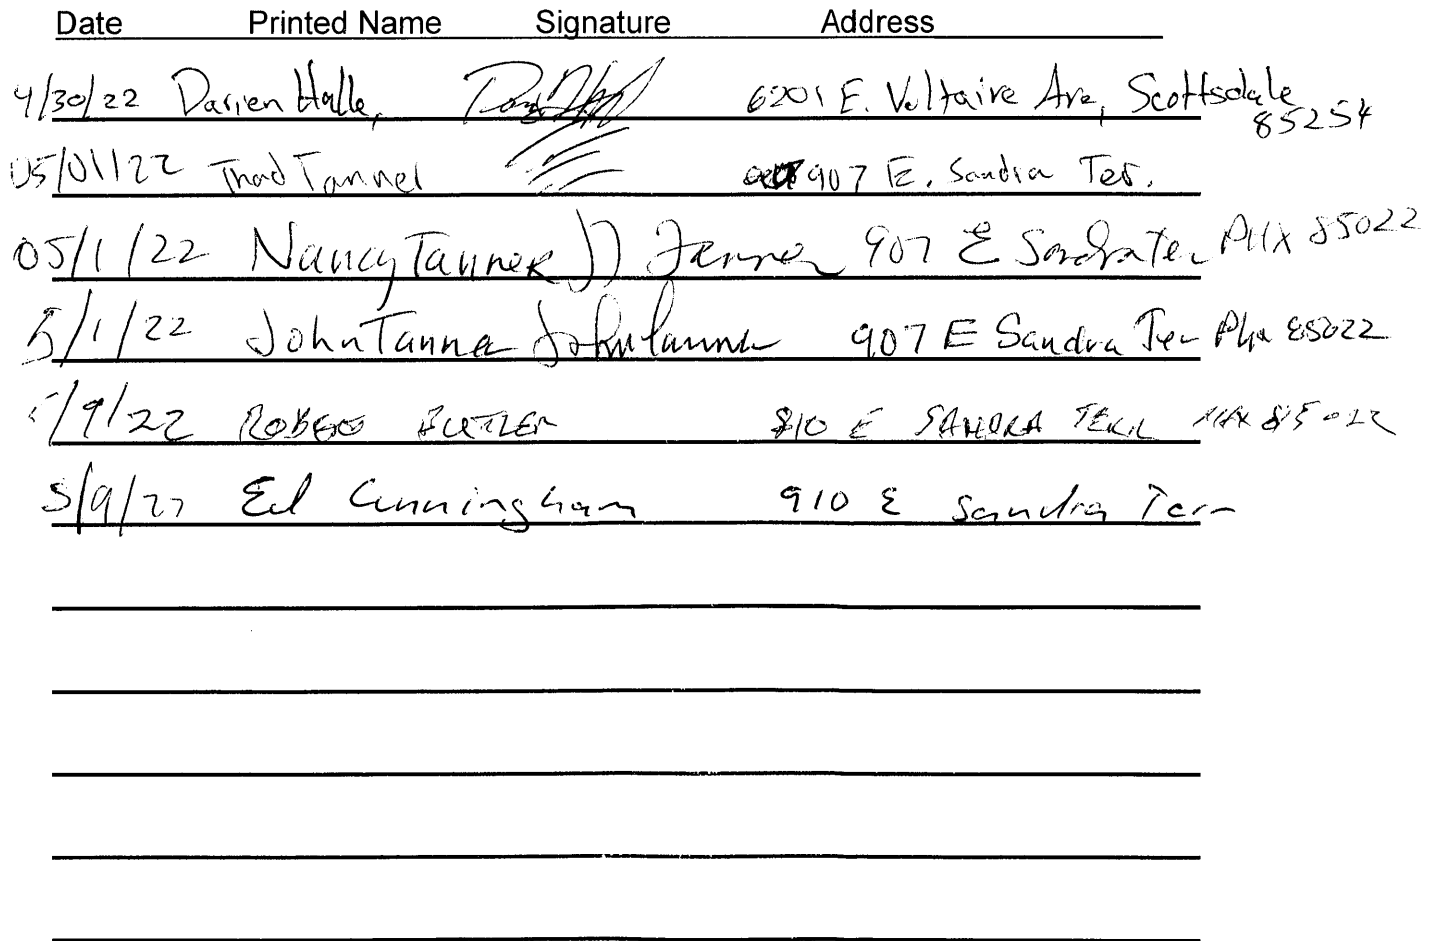 Date Printed Name Signature Address
4/30/22 Darien Halle, 6201 E. Voltaire Ave, Scottsdale
85254
05/01/22 Thad Tanner 907 E. Sandra Ter.
05/1/22 Nancy Tanner N Tanner 907 E Sandra Ter PHX 85022
5/1/22 John Tanner John Tanner 907 E Sandra Ter Phx 85022
5/9/22 BUTLER 810 E SANDRA TERR PHX 85022
5/9/22 Ed Cunningham 910 E Sandra Terr